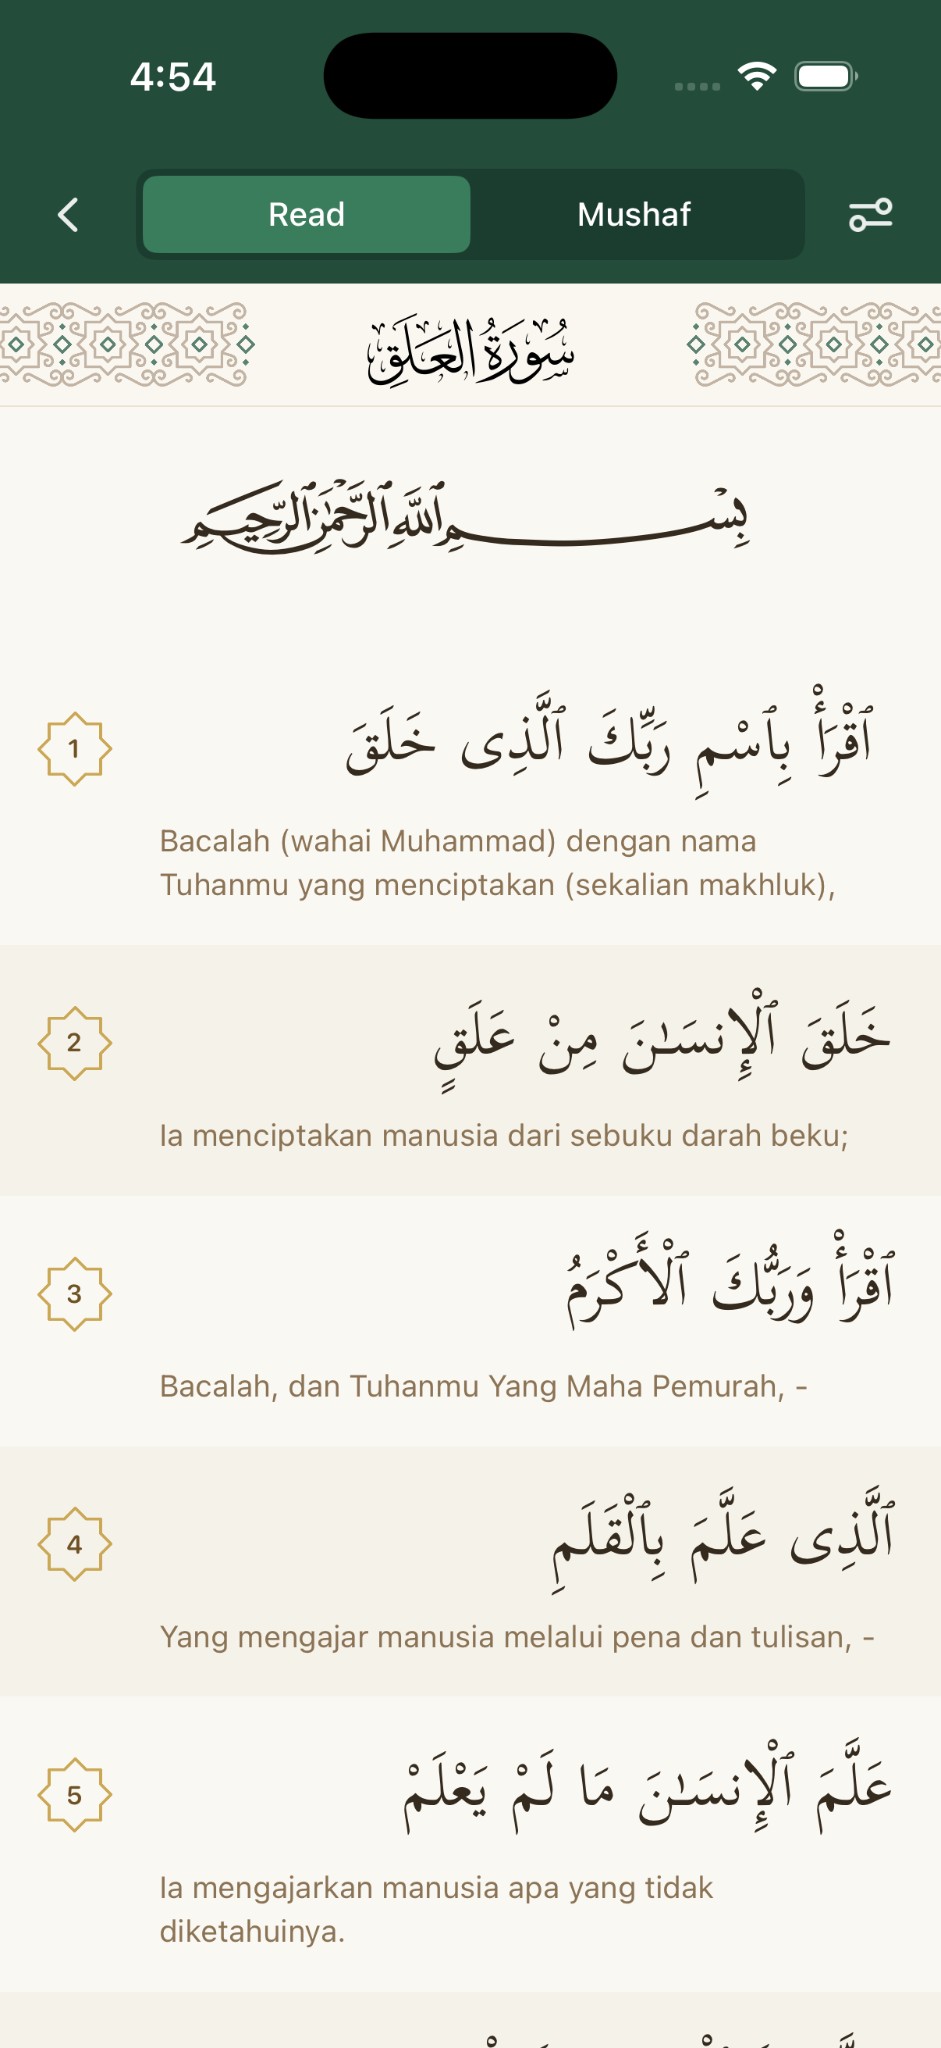 4:54
Read
Mushaf
سُورَةُ العَلَقِ
بِسْمِ ٱللَّهِ ٱلرَّحْمَٰنِ ٱلرَّحِيمِ
1
ٱقْرَأْ بِٱسْمِ رَبِّكَ ٱلَّذِى خَلَقَ
Bacalah (wahai Muhammad) dengan nama
Tuhanmu yang menciptakan (sekalian makhluk),
2
خَلَقَ ٱلْإِنسَـٰنَ مِنْ عَلَقٍ
Ia menciptakan manusia dari sebuku darah beku;
3
ٱقْرَأْ وَرَبُّكَ ٱلْأَكْرَمُ
Bacalah, dan Tuhanmu Yang Maha Pemurah, -
4
ٱلَّذِى عَلَّمَ بِٱلْقَلَمِ
Yang mengajar manusia melalui pena dan tulisan, -
5
عَلَّمَ ٱلْإِنسَـٰنَ مَا لَمْ يَعْلَمْ
Ia mengajarkan manusia apa yang tidak
diketahuinya.